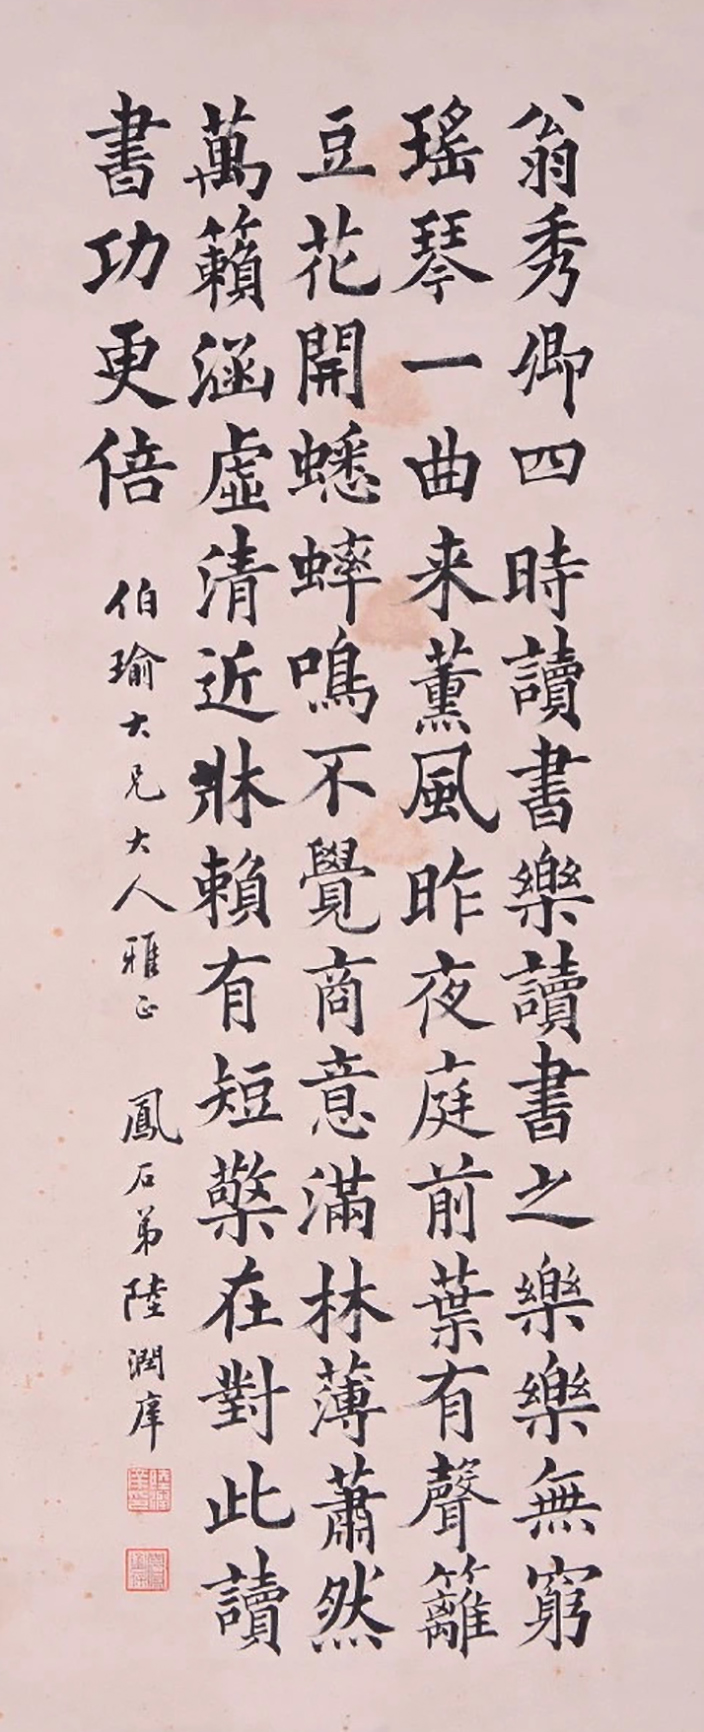 翁秀卿四時讀書樂讀書之樂樂無窮
瑤琴一曲来薰風昨夜庭前葉有聲籬
豆花開蟋蟀鳴不覺商意滿林薄蕭然
萬籟涵虛清近牀賴有短檠在對此讀
書功更倍
伯瑜大兄大人雅正
鳳石弟陸潤庠